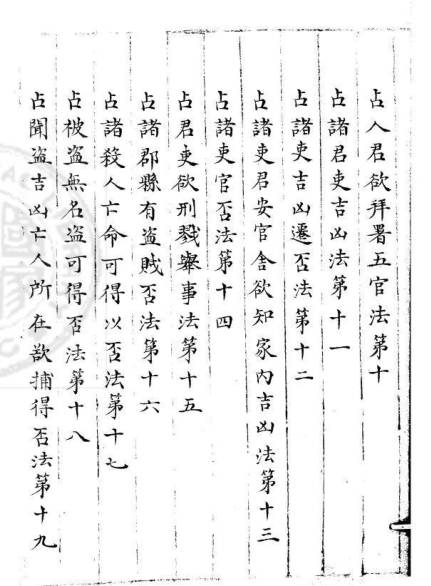 占人君欲拜署五官法第十
占諸君吏吉凶法第十一
占諸吏吉凶遷否法第十二
占諸吏君安官舍欲知家內吉凶法第十三
占諸吏官否法第十四
占君吏欲刑戮舉事法第十五
占諸郡縣有盜賊否法第十六
占諸殺人亡命可得以否法第十七
占被盜無名盜可得否法第十八
占聞盜吉凶亡人所在欲捕得否法第十九